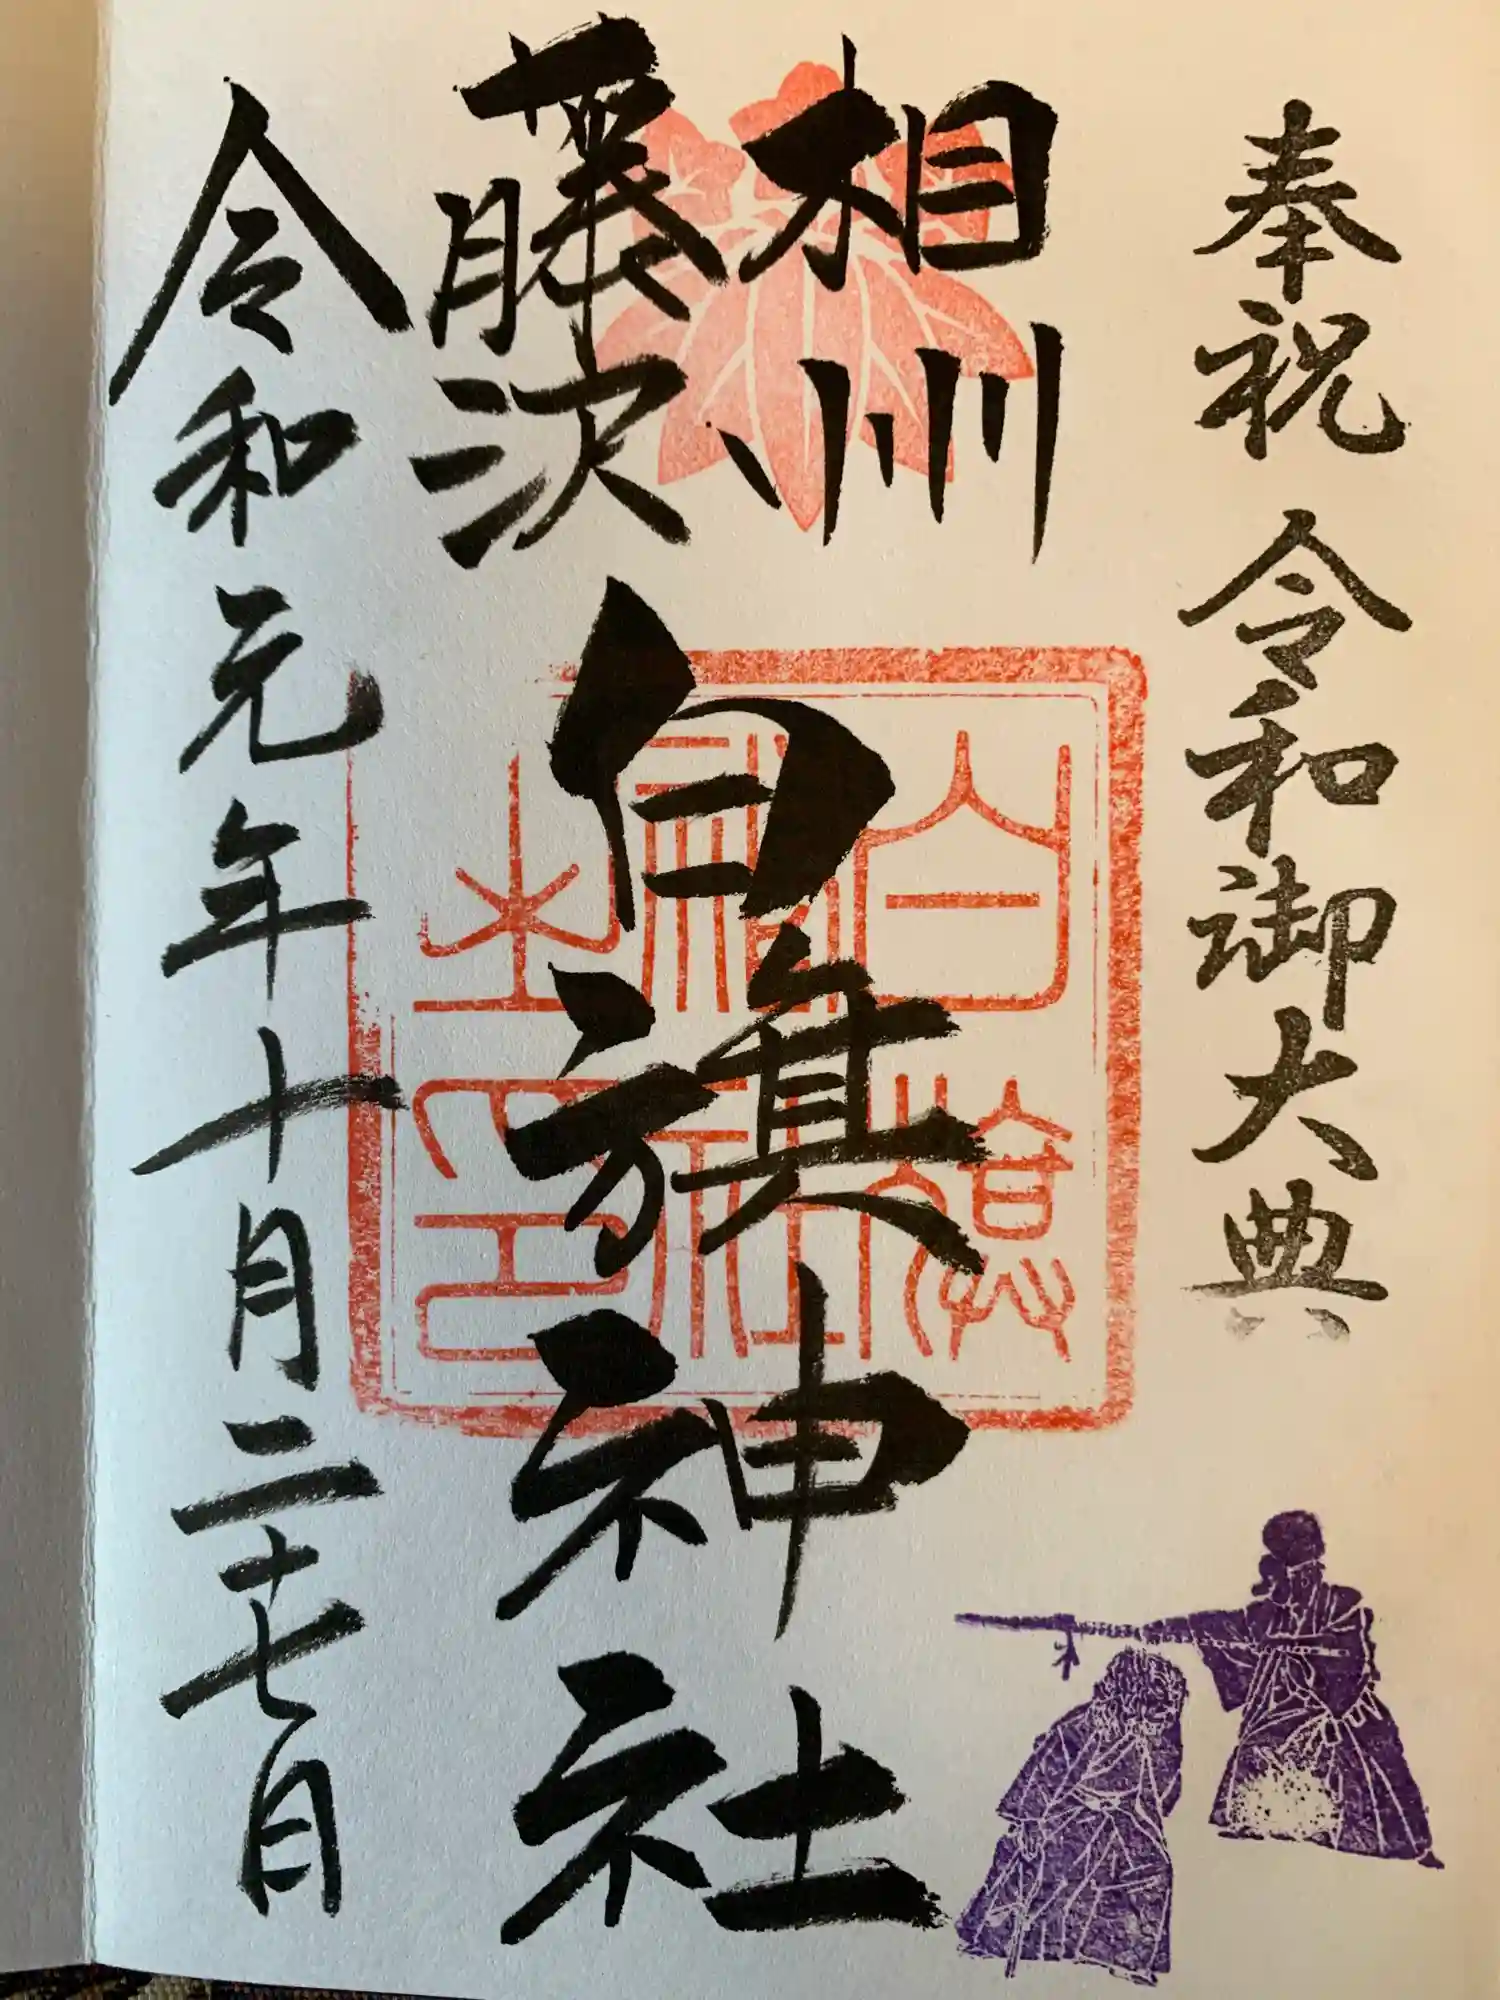 奉祝 令和御大典
相州
藤沢
白旗神社
令和元年十月二十七日
白旗
神社
之印